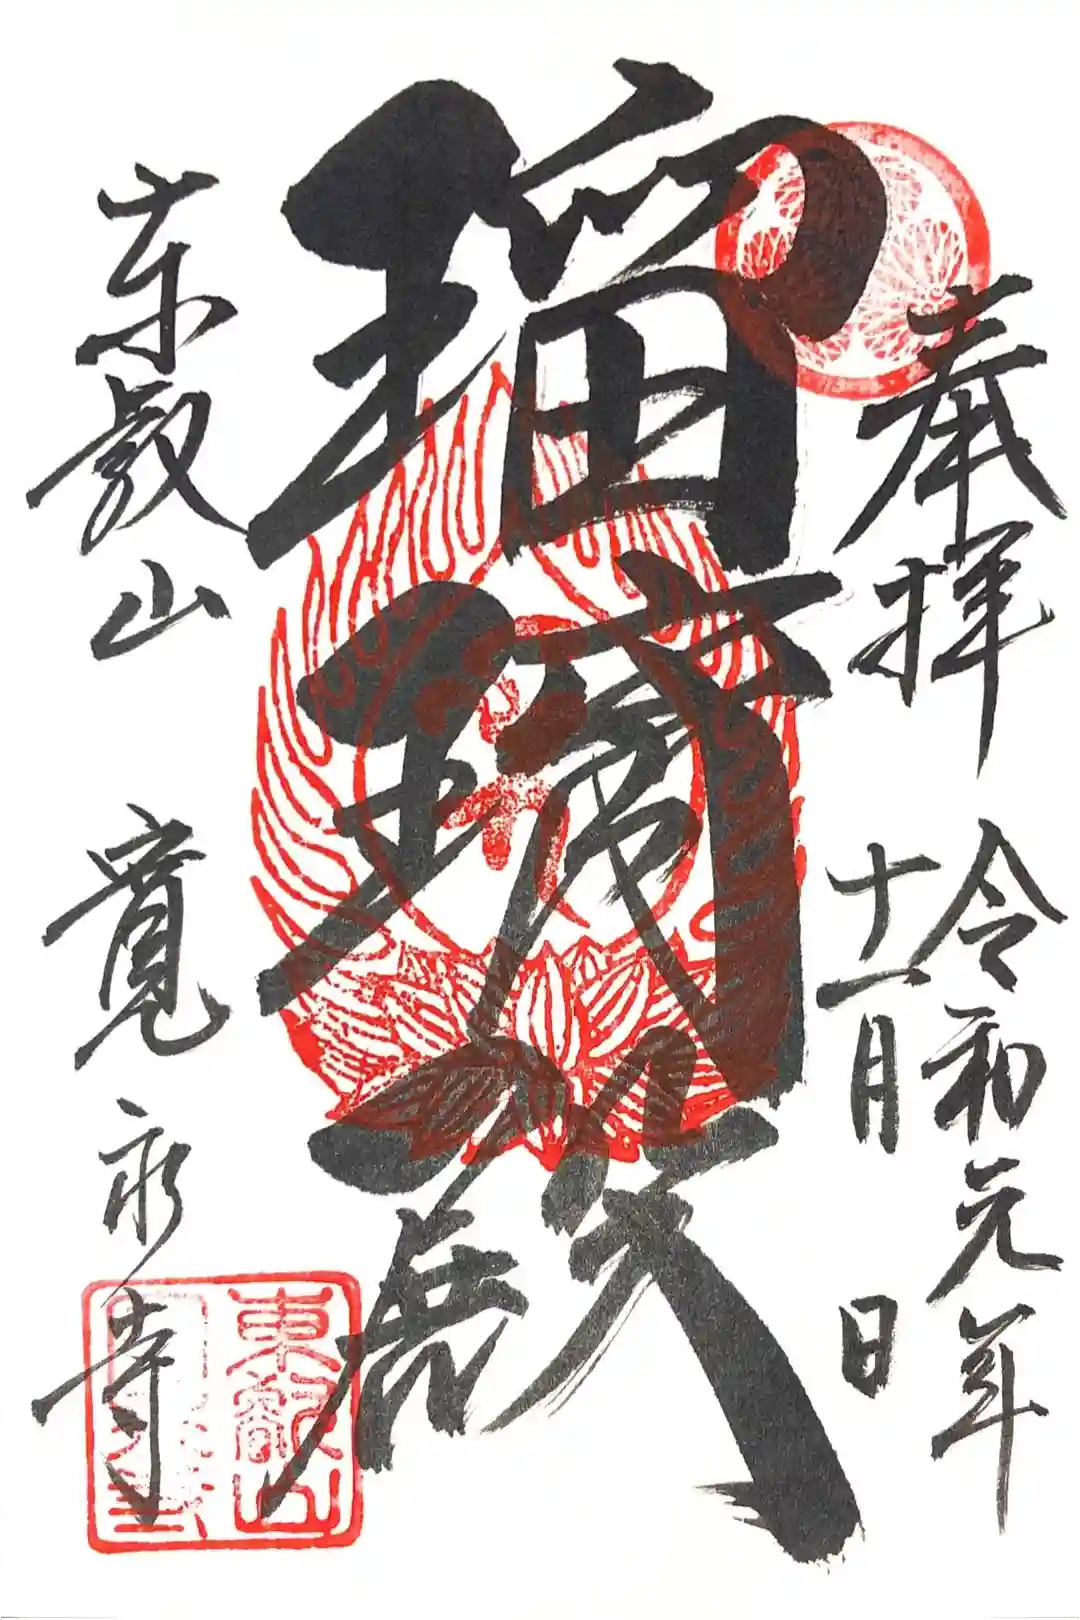 奉拝
令和元年
十一月 日
瑠璃殿
東叡山 寛永寺
東叡山